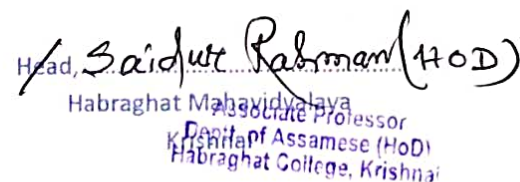 Head, Saidur Rahman (HOD)
Habraghat Mahavidyalaya
Associate Professor
Krishnai
Deptt. of Assamese (HoD)
Habraghat College, Krishnai